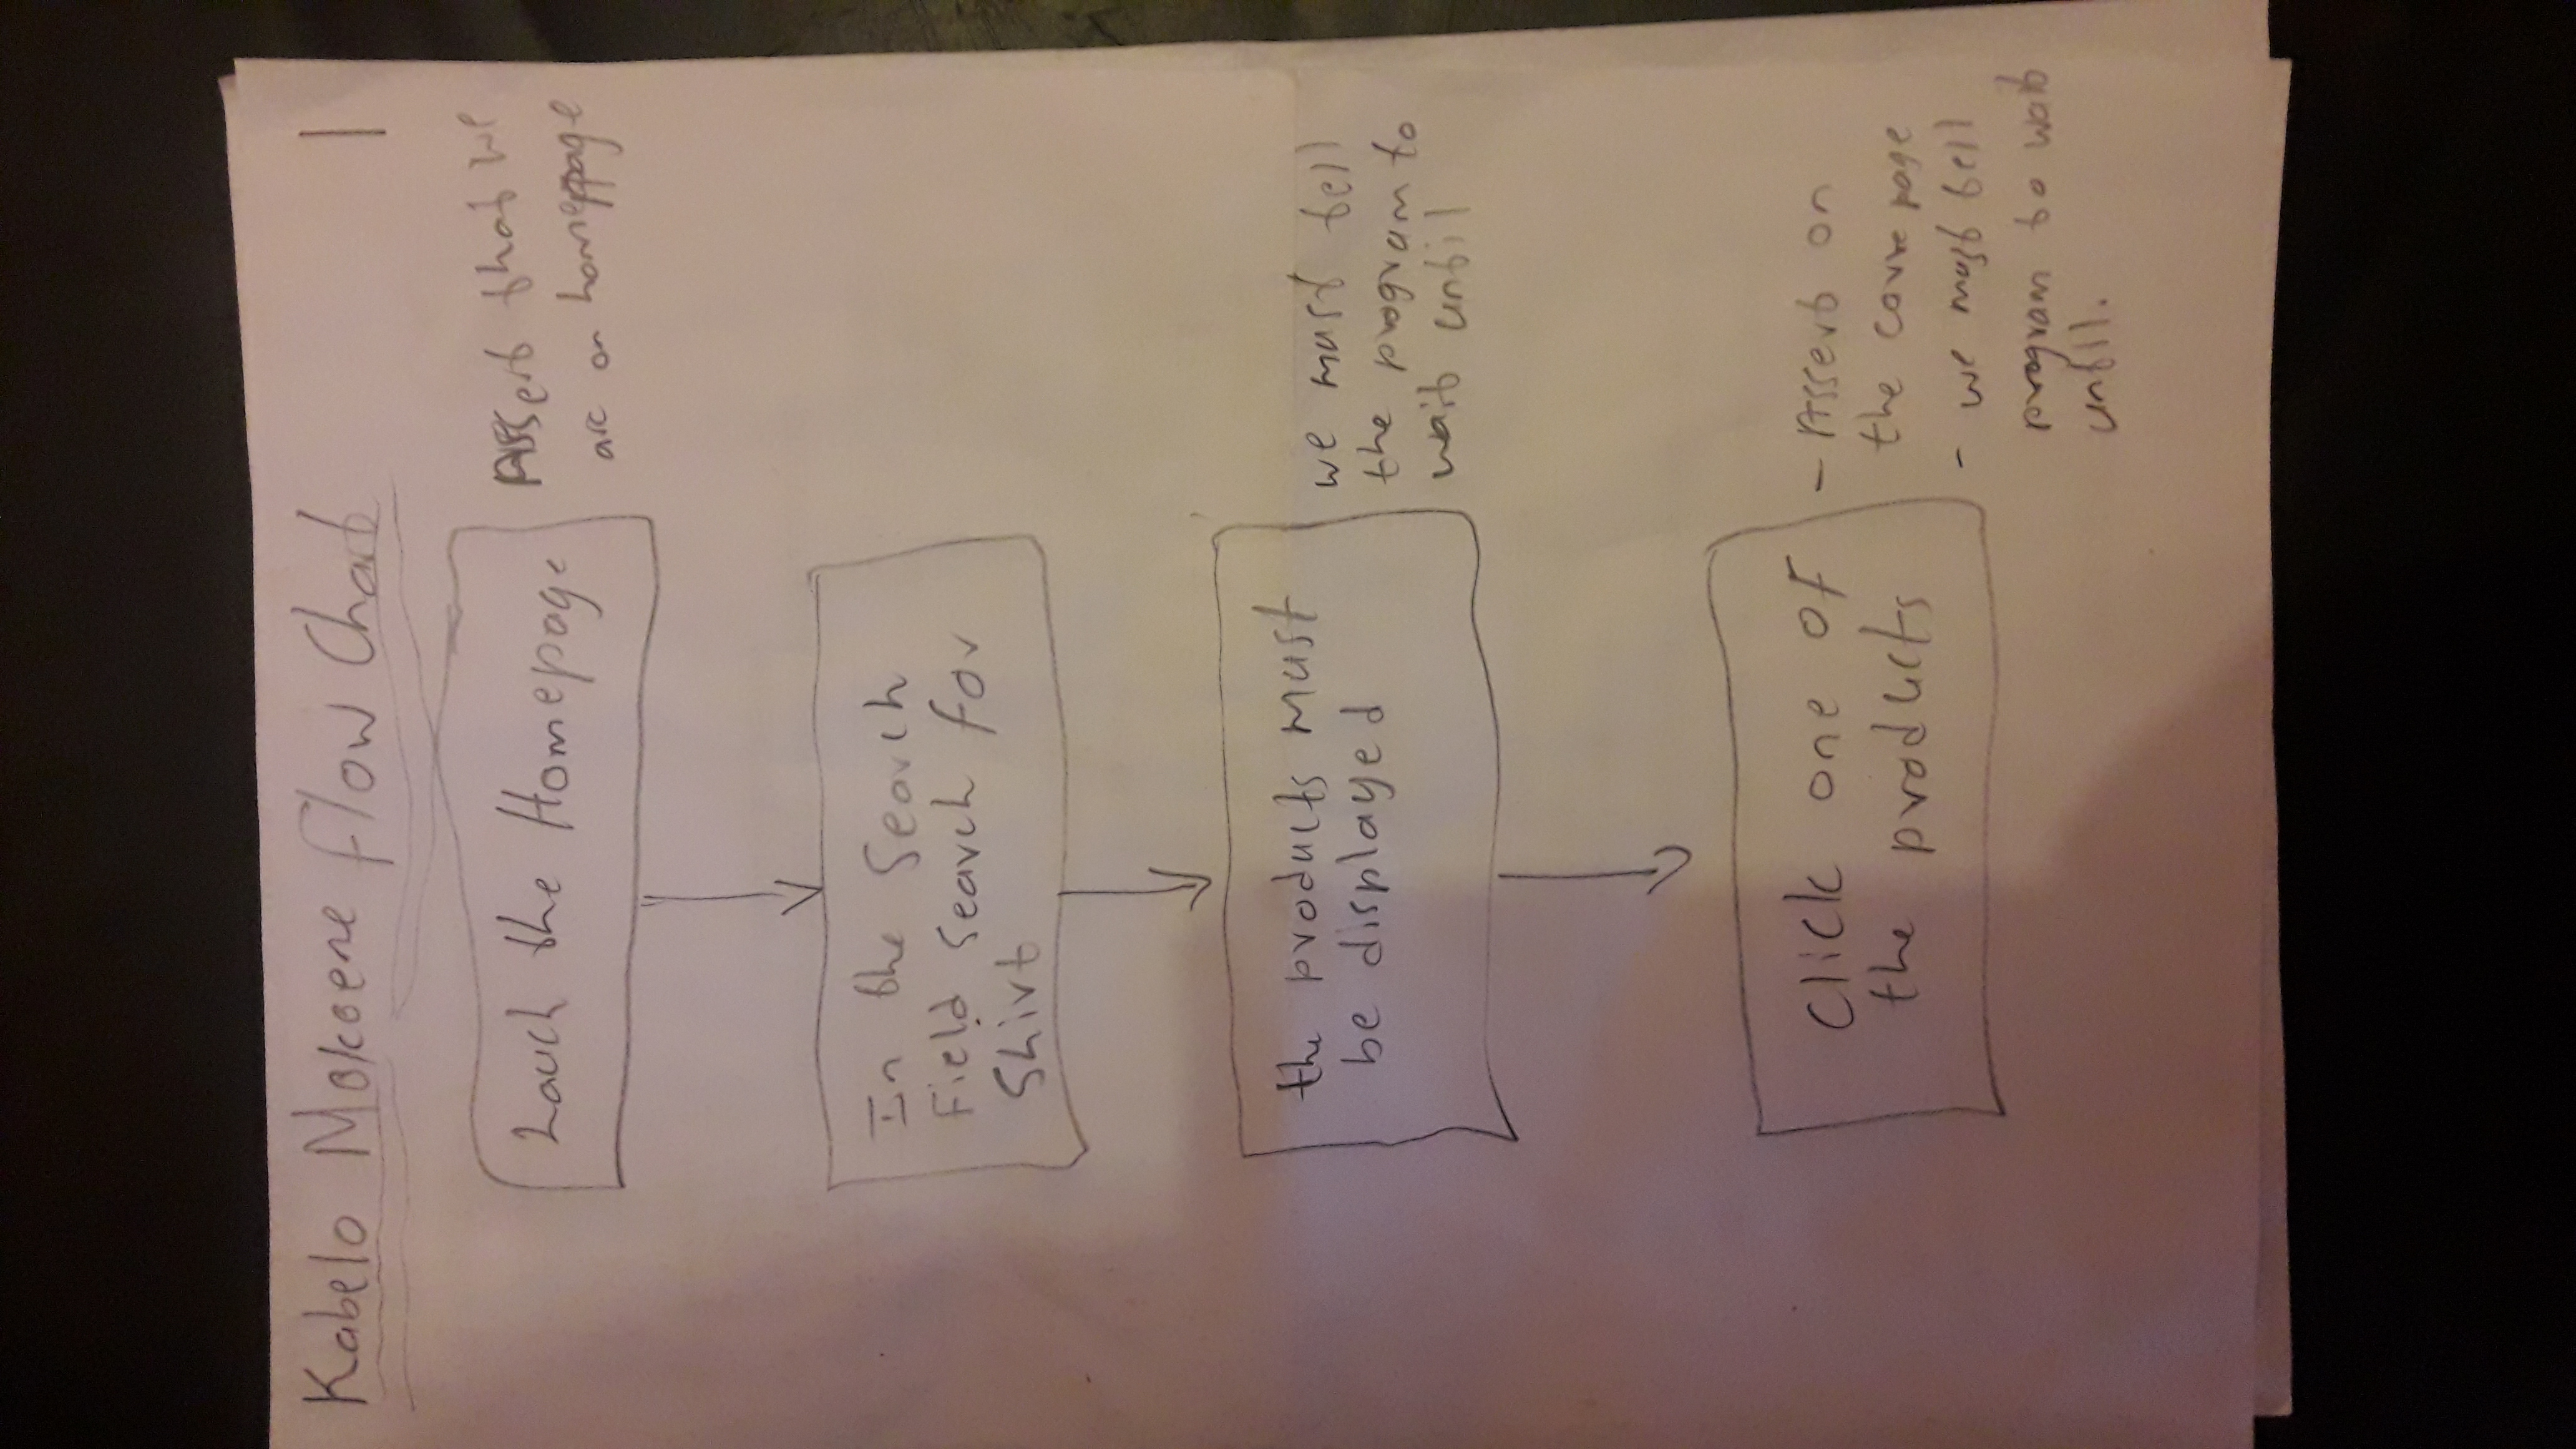 Kabelo Mokoene Flow Chart
1
Lauch the Homepage
Assert that we
are on homeppage
In the Search
Field search for
Shirt
the products must
be displayed
we must tell
the program to
wait until
Click one of
the products
- Assert on
the page
- we must tell
program to wait
untill.